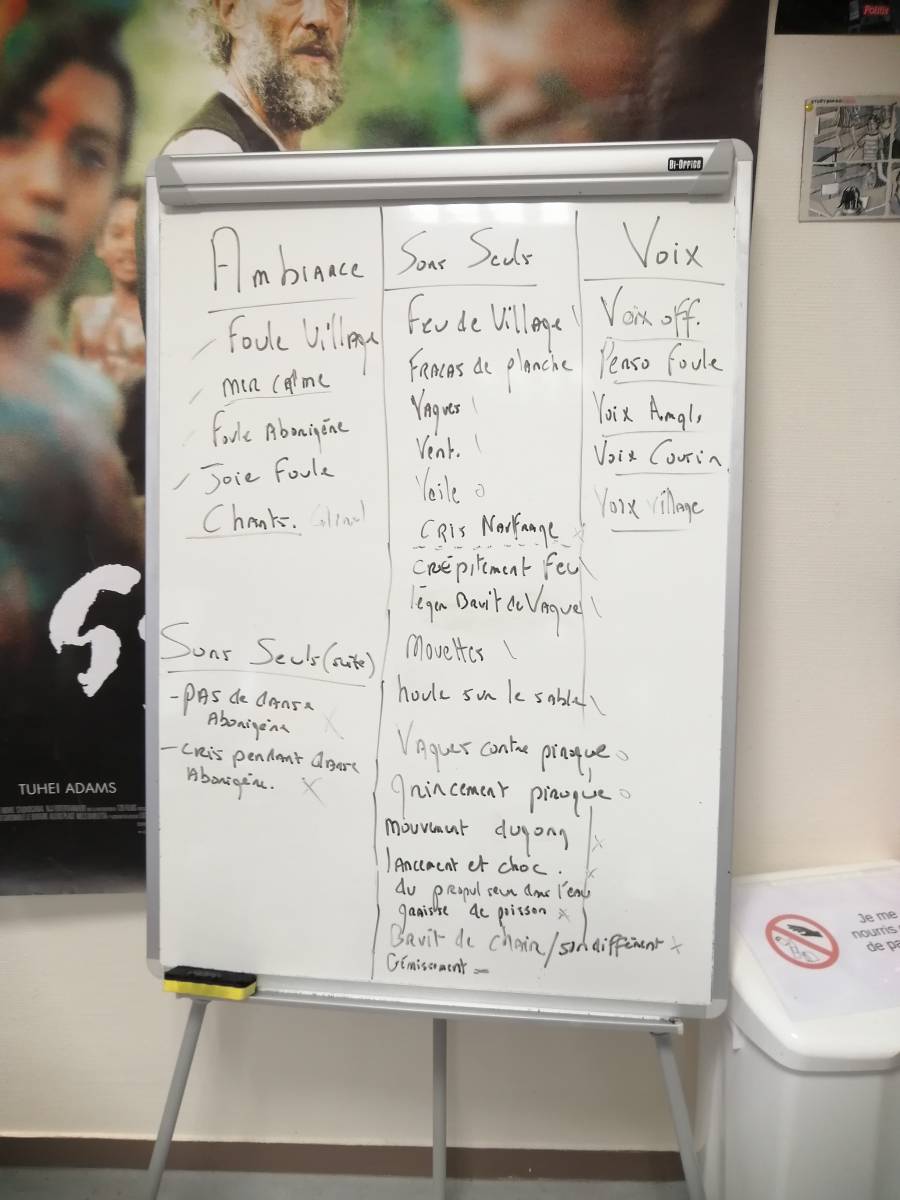 Politix
BI-OFFICE
Ambiance
Foule Village
mer calme
Foule Aborigène
Joie Foule
Chants.
Sons Seuls (suite)
- pas de danse
Aborigène X
- cris pendant danse
Aborigène. X
Sons Seuls
Feu de Village \
FRACAS de planche
Vagues \
Vent. \
Voile o
CRIS Naufrage x
crépitement feu \
léger Bruit de Vague \
Mouettes \
houle sur le sable \
Vagues contre pirogue o
grincement pirogue o
mouvement dugong x
lancement et choc. x
du propulseur dans l'eau
graisse de poisson x
Bruit de chair/son différent x
Gémissement -
Voix
Voix off.
Perso foule
Voix Angl.
Voix Cousin
Voix village
TUHEI ADAMS
Je me
nourris
de pa